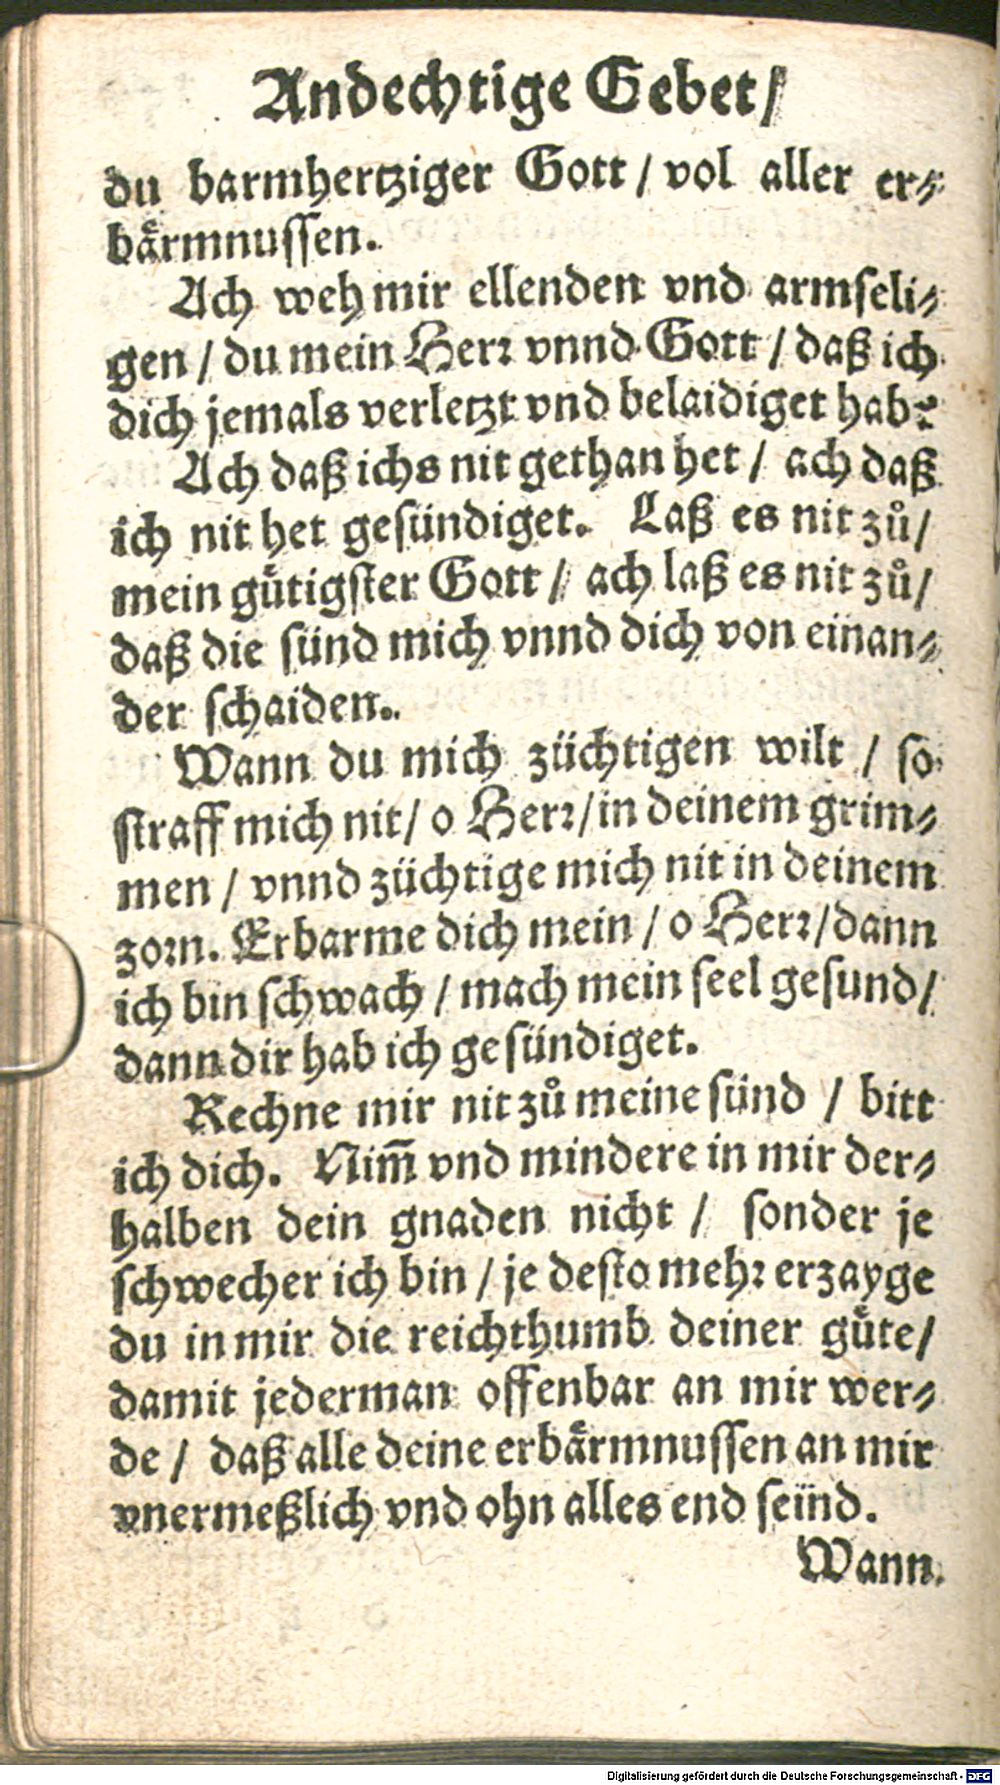 Andechtige Gebet/
du barmhertziger Gott / vol aller er⸗
baͤrmnussen.
Ach weh mir ellenden vnd armseli⸗
gen / du mein Herꝛ vnnd Gott / daß ich
dich jemals verletzt vnd belaidiget hab?
Ach daß ichs nit gethan het / ach daß
ich nit het gesündiget. Laß es nit zů/
mein guͤtigster Gott / ach laß es nit zů/
daß die sünd mich vnnd dich von einan⸗
der schaiden.
Wann du mich züchtigen wilt / so
straff mich nit/ o Herꝛ/ in deinem grim⸗
men / vnnd züchtige mich nit in deinem
zoꝛn. Erbarme dich mein / o Herꝛ/ dann
ich bin schwach / mach mein seel gesund/
dann dir hab ich gesündiget.
Rechne mir nit zů meine sünd / bitt
ich dich. Nim̃ vnd mindere in mir der⸗
halben dein gnaden nicht / sonder je
schwecher ich bin / je desto mehꝛ erzayge
du in mir die reichthumb deiner guͤte/
damit jederman offenbar an mir wer⸗
de / daß alle deine erbaͤrmnussen an mir
vnermeßlich vnd ohn alles end seind.
Wann
Digitalisierung gefördert durch die Deutsche Forschungsgemeinschaft - DFG